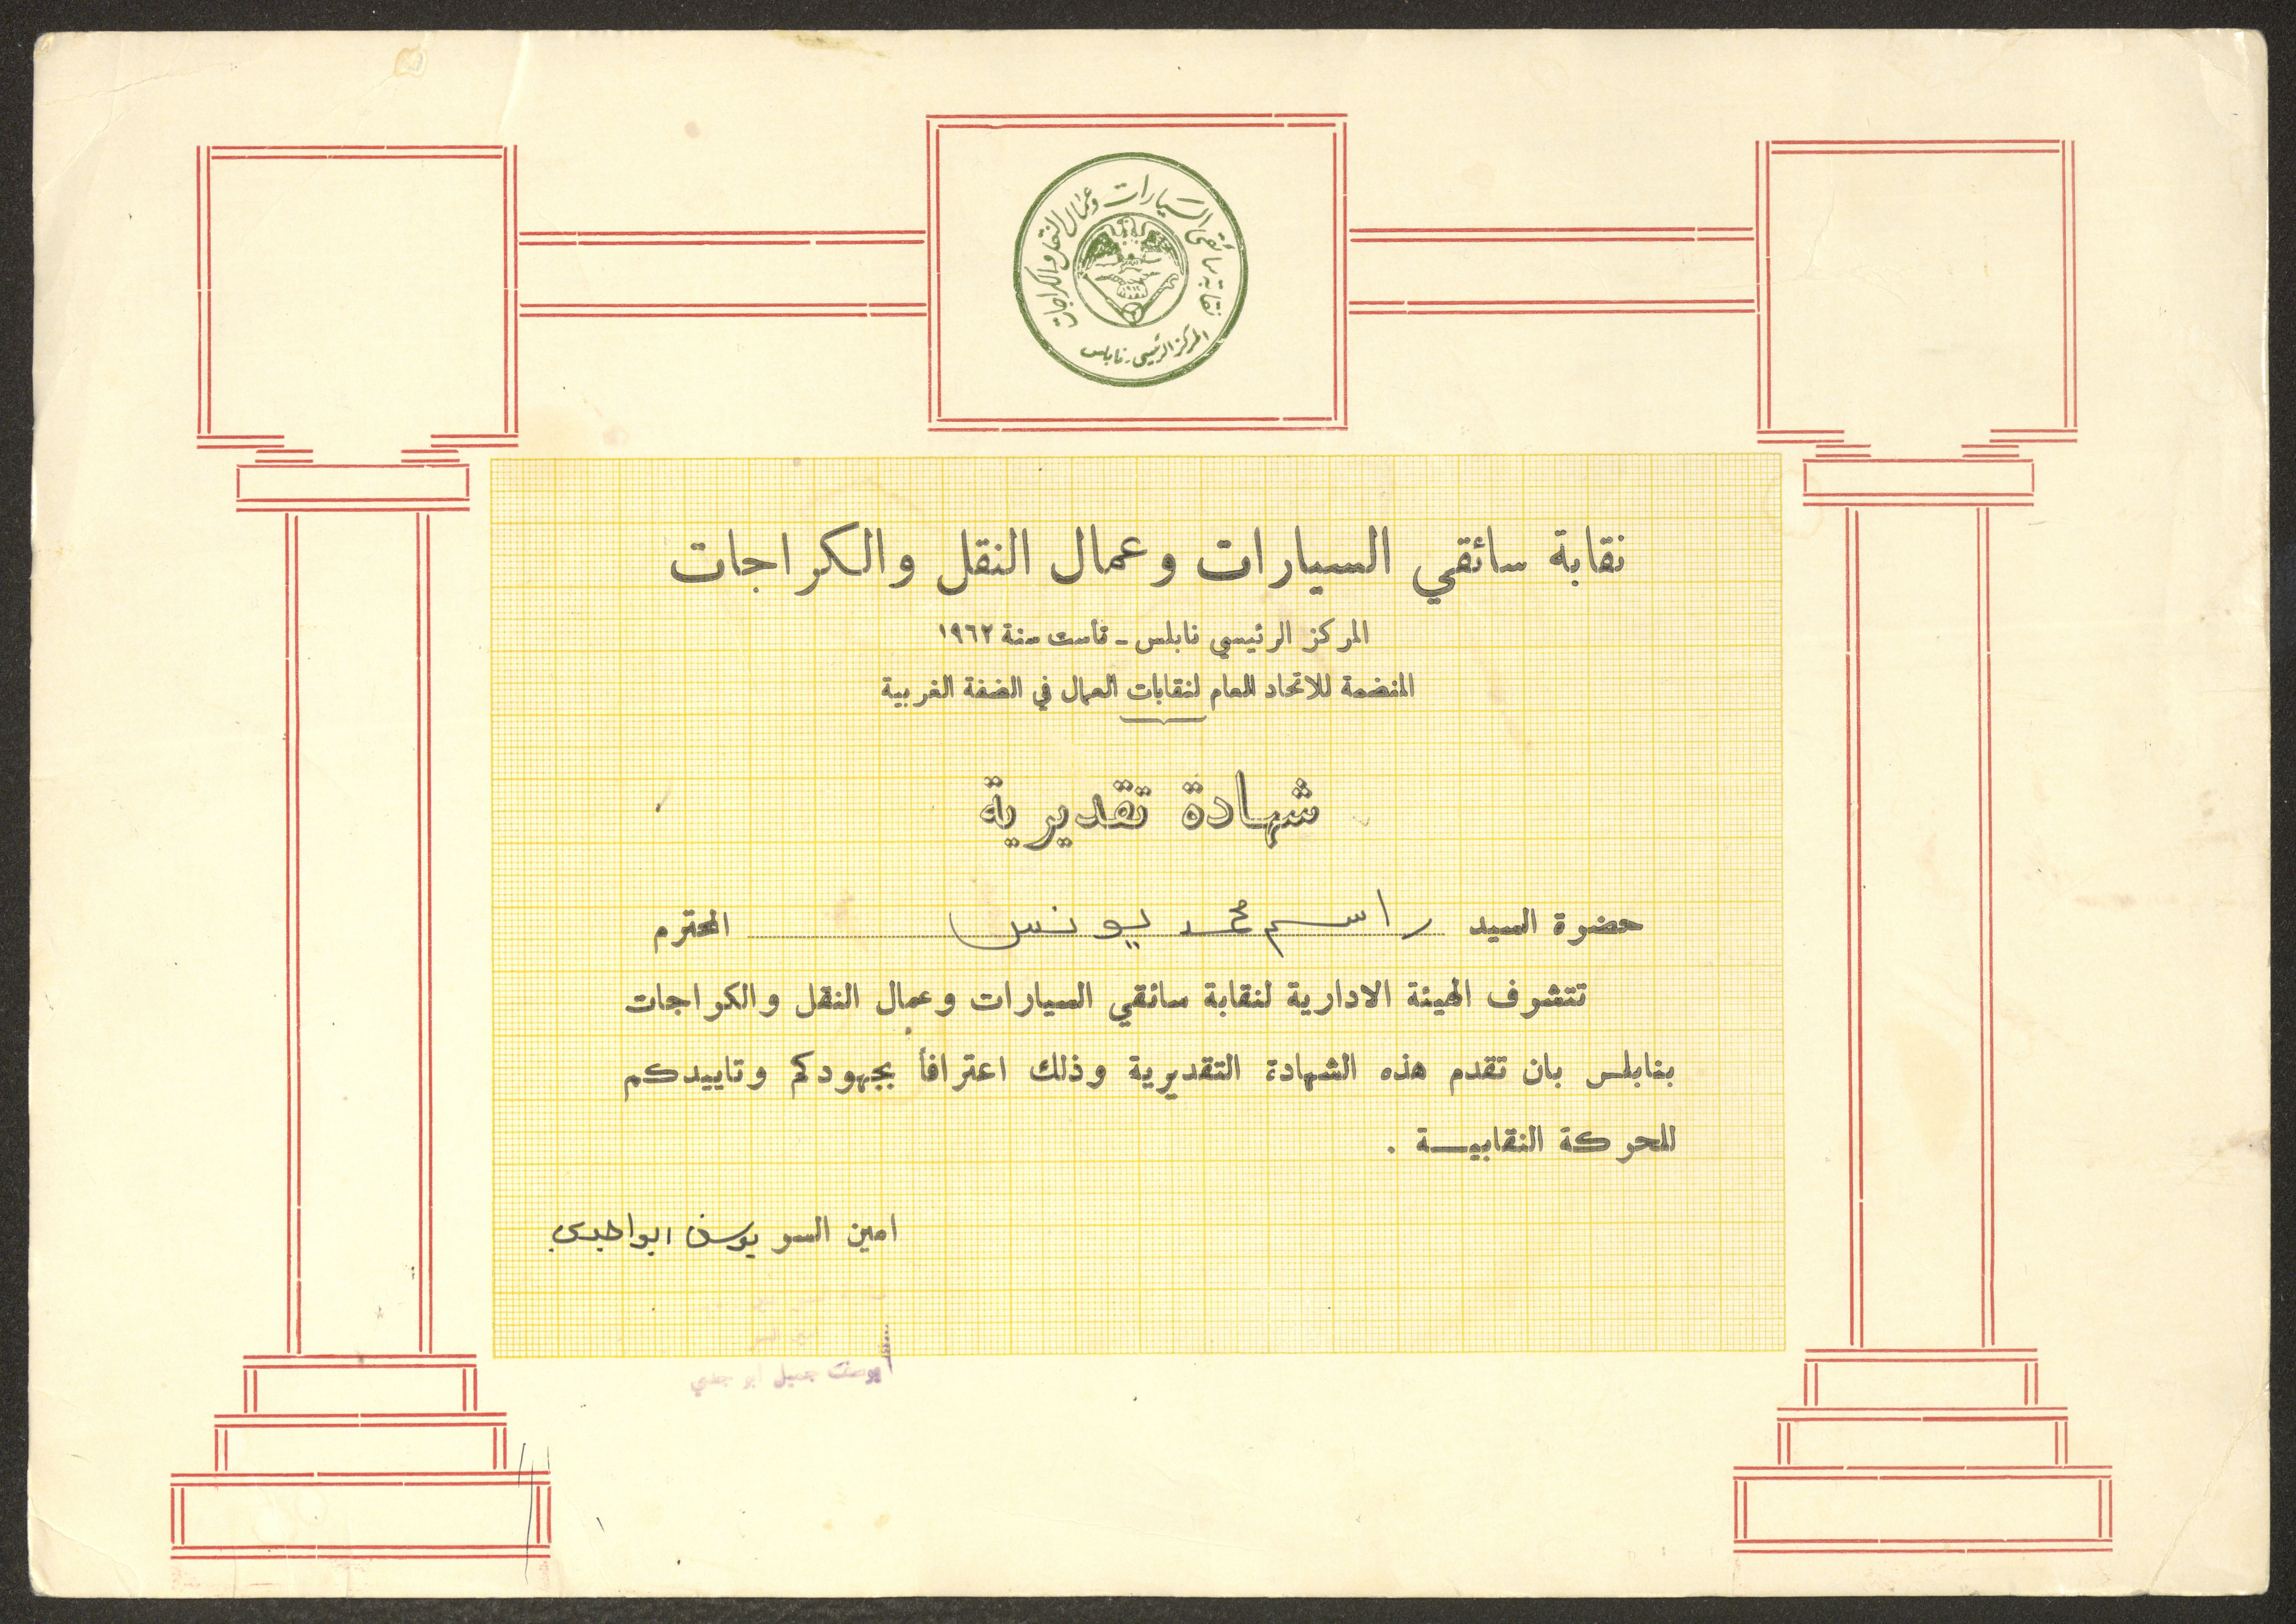 نقابة سائقي السيارات وعمال النقل والكراجات
المركز الرئيسي - نابلس
نقابة سائقي السيارات وعمال النقل والكراجات
المركز الرئيسي نابلس ـ تأست سنة ١٩٦٢
المنضمة للاتحاد العام لنقابات العمال في الضفة الغربية
شهادة تقديرية
حضرة السيد راسم محمد يونس المحترم
تتشرف الهيئة الادارية لنقابة سائقي السيارات وعمال النقل والكراجات
بنابلس بان تقدم هذه الشهادة التقديرية وذلك اعترافاً بجهودكم وتاييدكم
للحركة النقابيـــة .
امين السر يوسف ابو
امين السر
يوسف جميل ابو